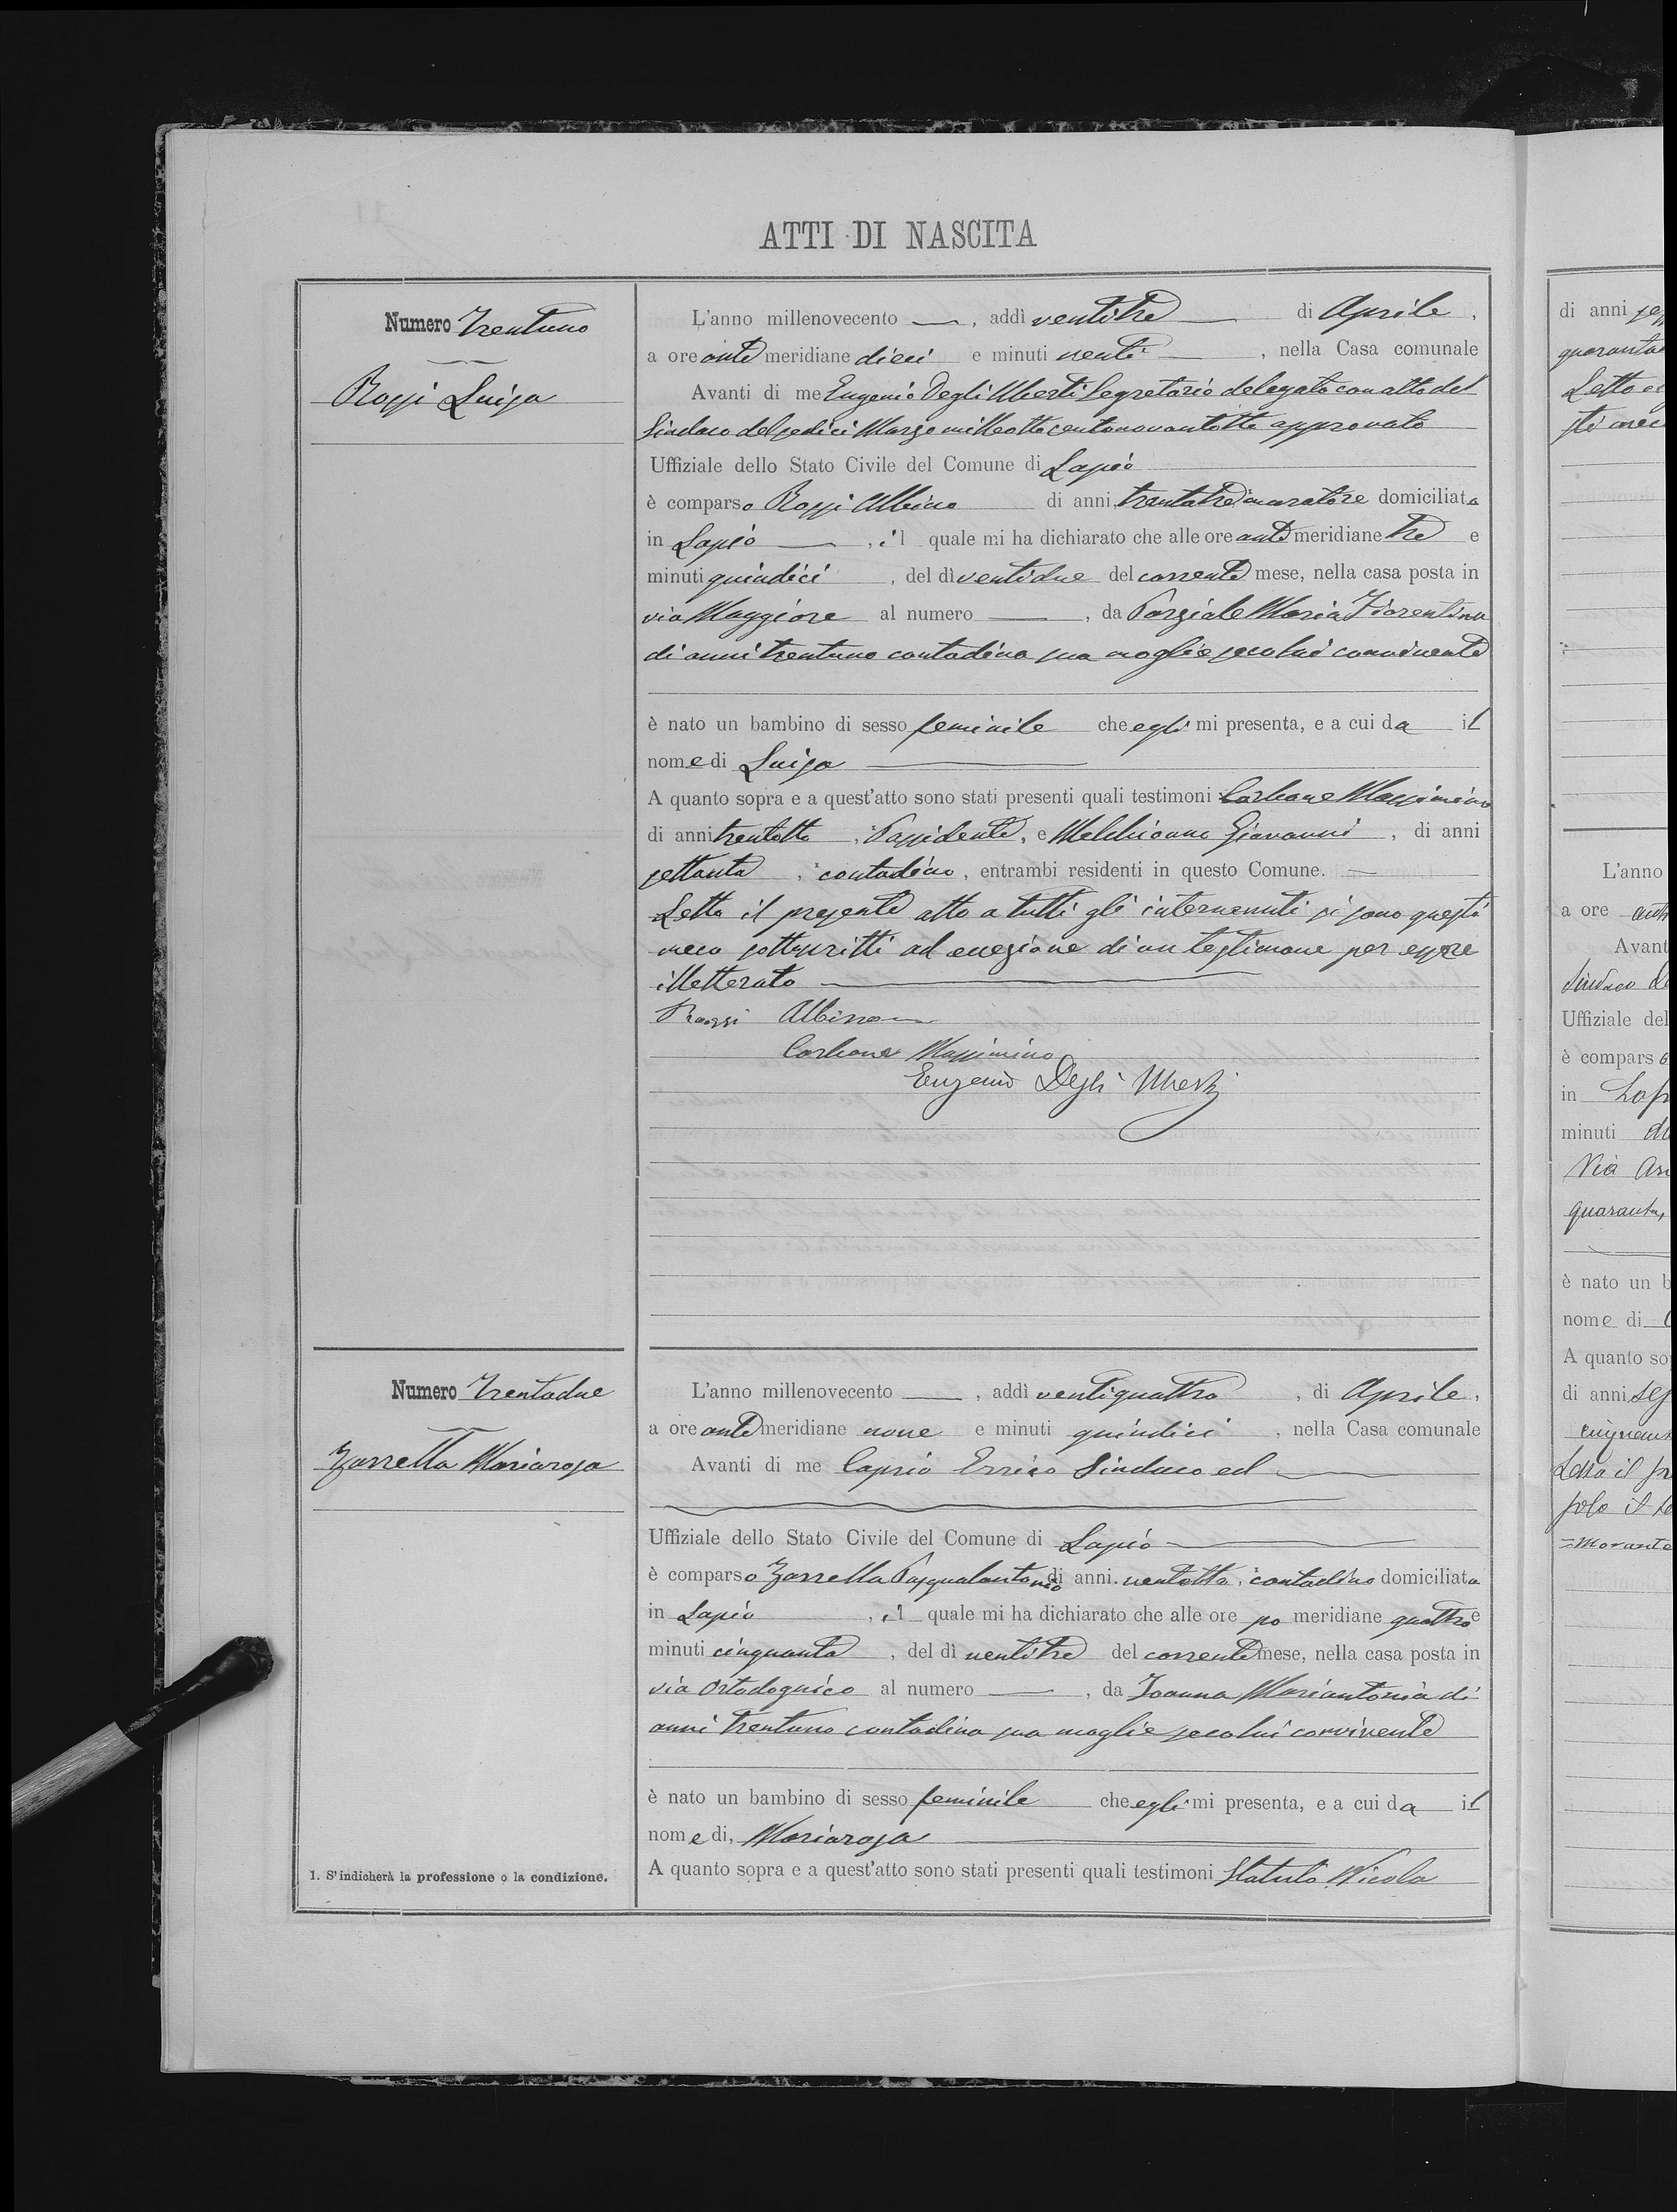 ATTI DI NASCITA
Numero Trentuno
Rossi Luisa
L'anno millenovecento —, addì ventitre — di Aprile,
a ore ante meridiane dieci e minuti venti —, nella Casa comunale
Avanti di me Eugenio Degli Uberti Segretario delegato con atto del
Sindaco del sedici Marzo milleottocentonovantotto approvato
Uffiziale dello Stato Civile del Comune di Lapio
è comparso Rossi Albino di anni trentatre muratore domiciliato
in Lapio —, il quale mi ha dichiarato che alle ore ante meridiane tre e
minuti quindici, del dì ventidue del corrente mese, nella casa posta in
via Maggiore al numero —, da Parziale Maria Fiorentina
di anni trentuno contadina sua moglie seco lui convivente
è nato un bambino di sesso feminile che egli mi presenta, e a cui da il
nome di Luisa —
A quanto sopra e a quest'atto sono stati presenti quali testimoni Carbone Massimino
di anni trentotto, Possidente, e Melchionno Giovanni, di anni
settanta, contadino, entrambi residenti in questo Comune. —
Letto il presente atto a tutti gli intervenuti si sono questi
meco sottoscritti ad eccezione di un testimone per essere
illetterato —
Rossi Albino
Carbone Massimino
Eugenio Degli Uberti
Numero Trentadue
Zarrella Mariarosa
L'anno millenovecento —, addì ventiquattro, di Aprile,
a ore ante meridiane nove e minuti quindici, nella Casa comunale
Avanti di me Caprio Errico Sindaco ed —
Uffiziale dello Stato Civile del Comune di Lapio —
è comparso Zarrella Pasqualantonio di anni ventotto, contadino domiciliato
in Lapio, il quale mi ha dichiarato che alle ore po meridiane quattro e
minuti cinquanta, del dì ventitre del corrente mese, nella casa posta in
via Ortodognico al numero —, da Ioanna Mariantonia di
anni trentuno contadina sua moglie seco lui convivente
è nato un bambino di sesso feminile che egli mi presenta, e a cui da il
nome di, Mariarosa —
A quanto sopra e a quest'atto sono stati presenti quali testimoni Statuto Nicola
1. S'indicherà la professione o la condizione.
di anni
quaranta
Letto
L'anno
a ore
Avant
Sindaco
Uffiziale del
è compars
in
minuti
Via
quaranta,
è nato un b
nome di
A quanto so
di anni